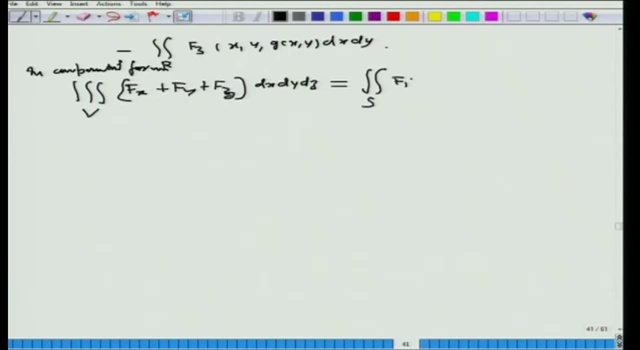 File Edit View Insert Actions Tools Help
− ∬ F₃ (x, y, g(x,y)) dx dy.
R
In component form
∭ {Fx + Fy + Fz} dx dy dz = ∬ F₁
V S
41 / 61
41